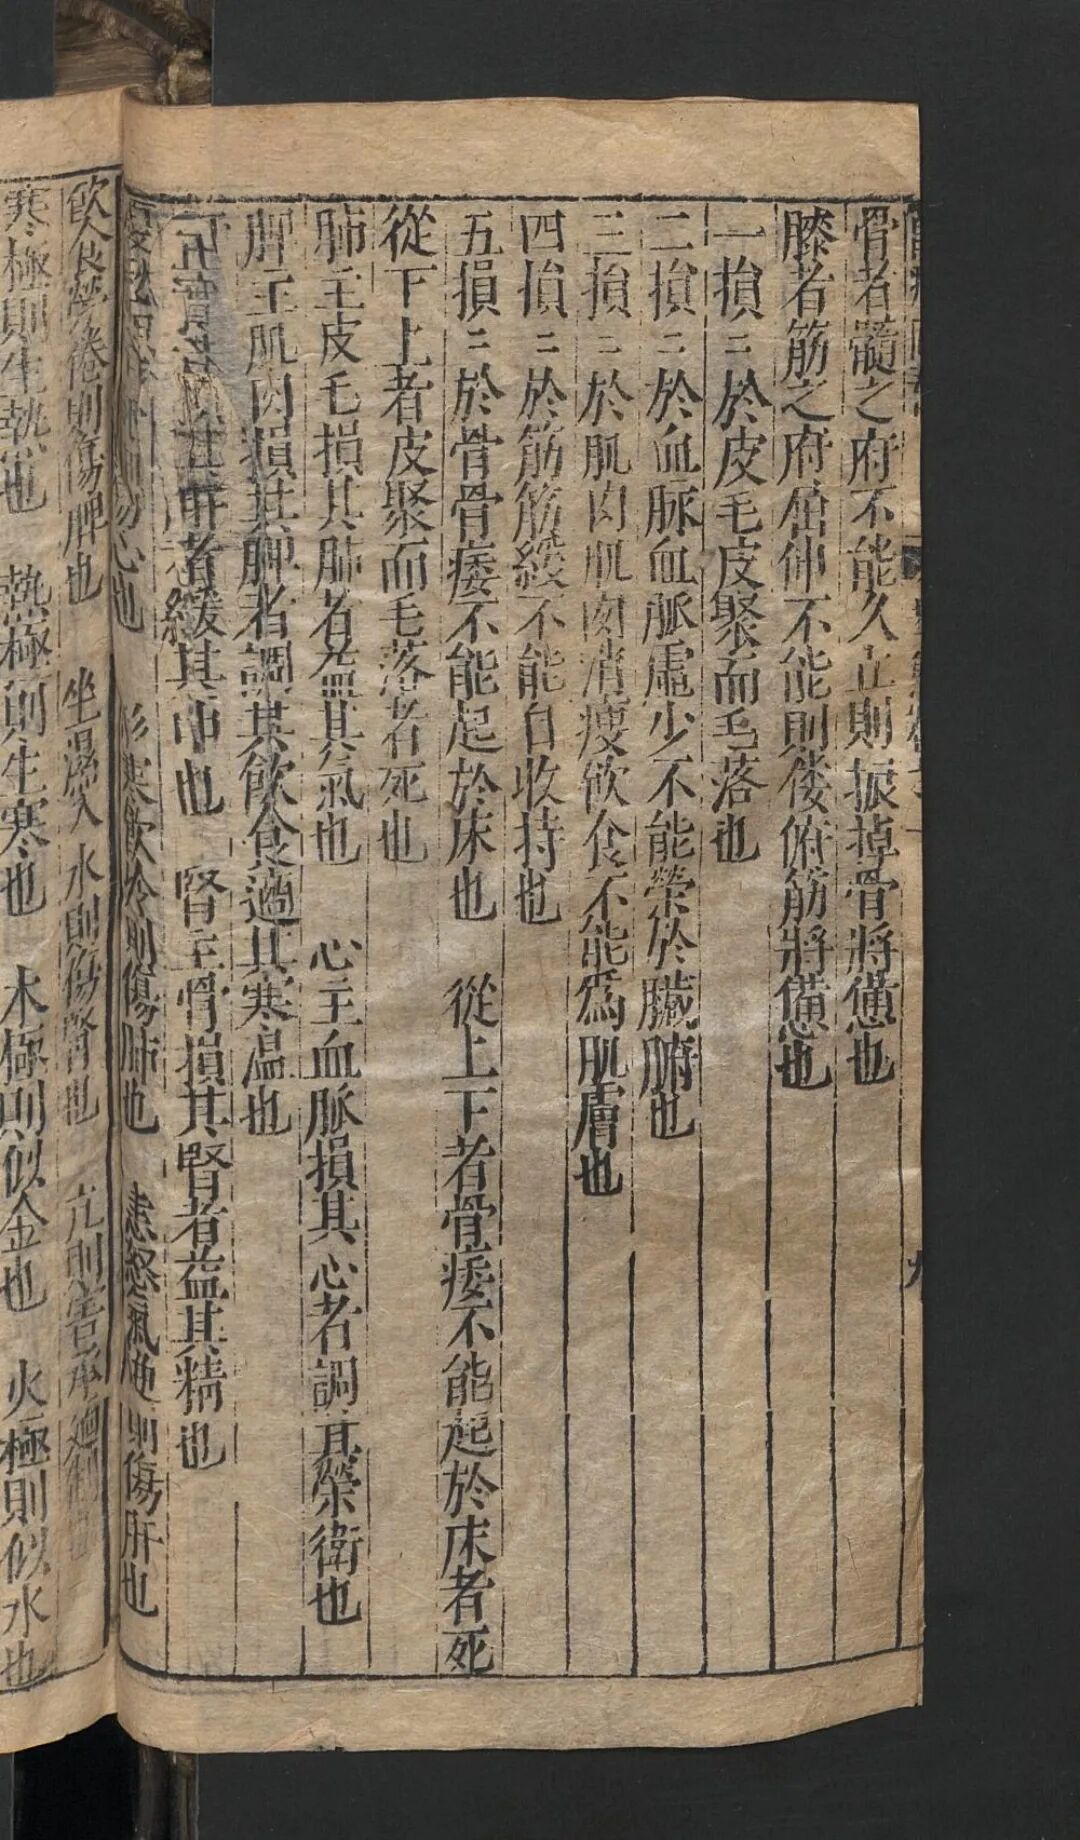 骨者髓之府不能久立則振掉骨將憊也
膝者筋之府屈伸不能則僂俯筋將憊也
一損損於皮毛皮聚而毛落也
二損損於血脉血脈虛少不能榮於臟腑也
三損損於肌肉肌肉消瘦飲食不能為肌膚也
四損損於筋筋緩不能自收持也
五損損於骨骨痿不能起於床也 從上下者骨痿不能起於床者死
從下上者皮聚而毛落者死也
肺主皮毛損其肺者益其氣也 心主血脈損其心者調其榮衛也
脾主肌肉損其脾者調其飲食適其寒温也
肝者緩其中也 腎主骨損其腎者益其精也
傷心也 形寒飲冷則傷肺也 恚怒氣逆則傷肝也
飲食勞倦則傷脾也 坐濕入水則傷腎也 亢則害承廼制
寒極則生熱也 熱極則生寒也 木極則似金也 火極則似水也